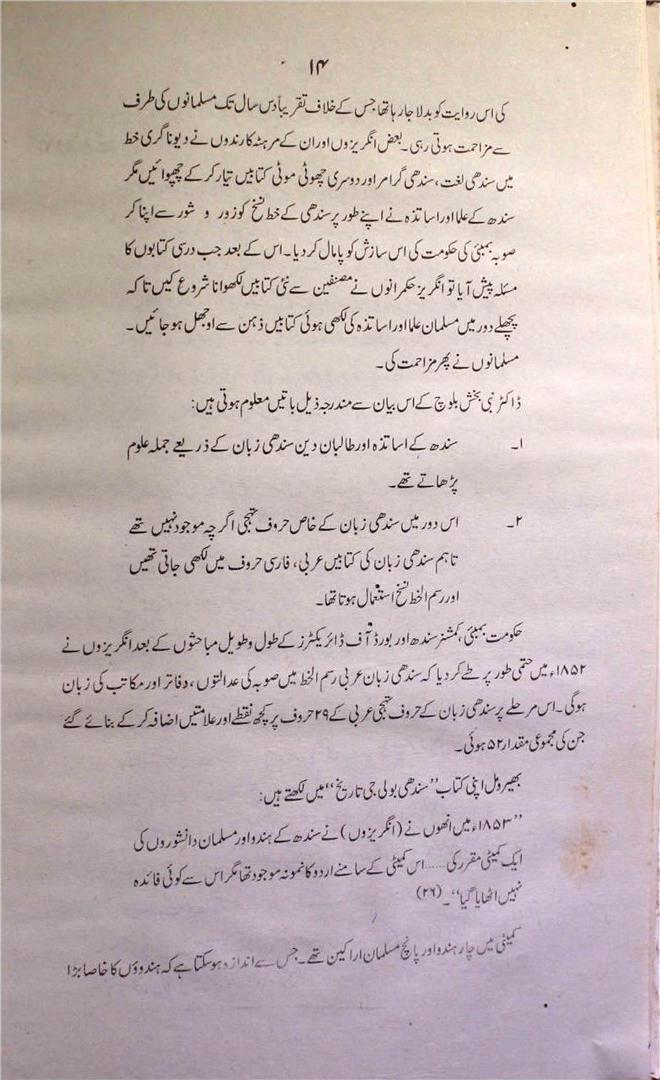 ۱۴
کی اس روایت کو بدلا جا رہا تھا جس کے خلاف تقریباً دس سال تک مسلمانوں کی طرف
سے مزاحمت ہوتی رہی۔ بعض انگریزوں اور ان کے مرہٹہ کارندوں نے دیوناگری خط
میں سندھی لغت، سندھی گرامر اور دوسری چھوٹی موٹی کتابیں تیار کر کے چھپوائیں مگر
سندھ کے علما اور اساتذہ نے اپنے طور پر سندھی کے خط نسخ کو زور و شور سے اپنا کر
صوبہ بمبئی کی حکومت کی اس سازش کو پامال کر دیا۔ اس کے بعد جب درسی کتابوں کا
مسئلہ پیش آیا تو انگریز حکمرانوں نے مصنفین سے نئی کتابیں لکھوانا شروع کیں تا کہ
پچھلے دور میں مسلمان علما اور اساتذہ کی لکھی ہوئی کتابیں ذہن سے اوجھل ہو جائیں۔
مسلمانوں نے پھر مزاحمت کی۔
ڈاکٹر نبی بخش بلوچ کے اس بیان سے مندرجہ ذیل باتیں معلوم ہوتی ہیں:
۱۔ سندھ کے اساتذہ اور طالبان دین سندھی زبان کے ذریعے جملہ علوم
پڑھاتے تھے۔
۲۔ اس دور میں سندھی زبان کے خاص حروف تہجی اگرچہ موجود نہیں تھے
تاہم سندھی زبان کی کتابیں عربی، فارسی حروف میں لکھی جاتی تھیں
اور رسم الخط نسخ استعمال ہوتا تھا۔
حکومت بمبئی، کمشنر سندھ اور بورڈ آف ڈائریکٹرز کے طول و طویل مباحثوں کے بعد انگریزوں نے
۱۸۵۲ء میں حتمی طور پر طے کر دیا کہ سندھی زبان عربی رسم الخط میں صوبہ کی عدالتوں، دفاتر اور مکاتب کی زبان
ہوگی۔ اس مرحلے پر سندھی زبان کے حروف تہجی عربی کے ۲۹ حروف پر کچھ نقطے اور علامتیں اضافہ کر کے بنائے گئے
جن کی مجموعی مقدار ۵۲ ہوئی۔
بھیرومل اپنی کتاب ”سندھی بولی جی تاریخ“ میں لکھتے ہیں:
”۱۸۵۳ء میں انھوں نے (انگریزوں) نے سندھ کے ہندو اور مسلمان دانشوروں کی
ایک کمیٹی مقرر کی...... اس کمیٹی کے سامنے اردو کا نمونہ موجود تھا مگر اس سے کوئی فائدہ
نہیں اٹھایا گیا“۔ (۲۶)
کمیٹی میں چار ہندو اور پانچ مسلمان اراکین تھے۔ جس سے اندازہ ہو سکتا ہے کہ ہندوؤں کا خاصا بڑا